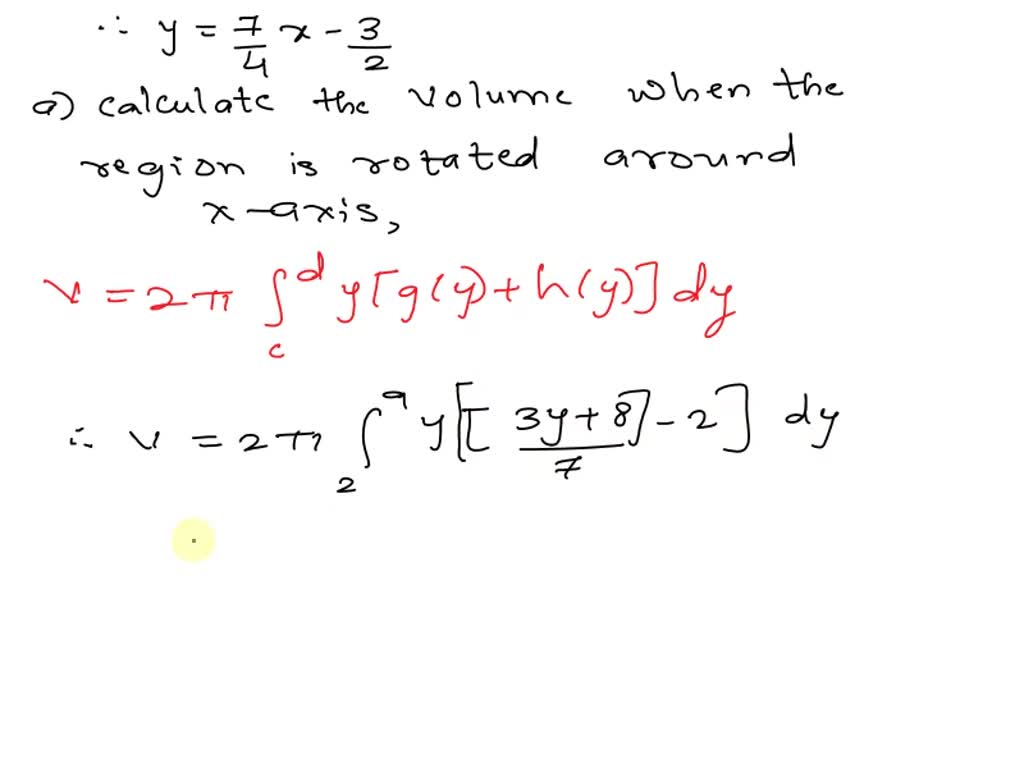 ∴ y = 7/4 x - 3/2
a) calculate the volume when the
region is rotated around
x-axis,
V = 2π ∫_c^d y[g(y)+h(y)] dy
∴ V = 2π ∫_2^9 y[[3y+8]/7 - 2] dy